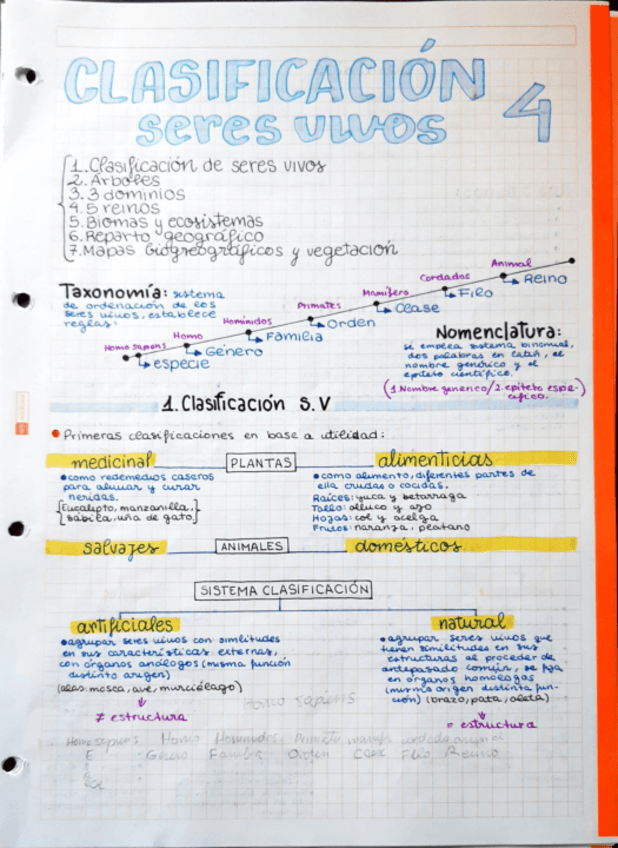 CLASIFICACIÓN
seres vivos 4
1. Clasificación de seres vivos
2. Árboles
3. 3 dominios
4. 5 reinos
5. Biomas y ecosistemas
6. Reparto geográfico
7. Mapas biogreográficos y vegetación
Taxonomía: sistema
de ordenación de los
seres vivos, establece
reglas:
Homo sapiens
especie
Homo
Género
Homínidos
Familia
Primates
Orden
Mamífero
Clase
Cordados
Filo
Animal
Reino
Nomenclatura:
se emplea sistema binomial,
dos palabras en latín, el
nombre genérico y el
epíteto científico.
(1. Nombre generico/2. epíteto espe-
cífico.)
1. Clasificación S.V
Primeras clasificaciones en base a utilidad:
medicinal PLANTAS alimenticias
como redemedios caseros
para aliviar y curar
heridas.
[Eucalipto, manzanilla,
sábila, uña de gato.]
como alimento, diferentes partes de
ella crudas o cocidas.
Raíces: yuca y betarraga
Tallo: olluco y ajo
Hojas: col y acelga
Frutos: naranja, platano
salvajes ANIMALES domésticos
SISTEMA CLASIFICACIÓN
artificiales
agrupar seres vivos con similitudes
en sus características externas,
con órganos análogos (misma función
distinto origen)
(alas: mosca, ave, murciélago)
≠ estructura
natural
agrupar seres vivos que
tienen similitudes en sus
estructuras al proceder de
antepasado común, se fija
en órganos homólogos
(mismo origen distinta fun-
ción) (brazo, pata, aleta)
= estructura
Homo sapiens
Homo sapiens Homo
E Género Familia Orden Clase Filo Reino